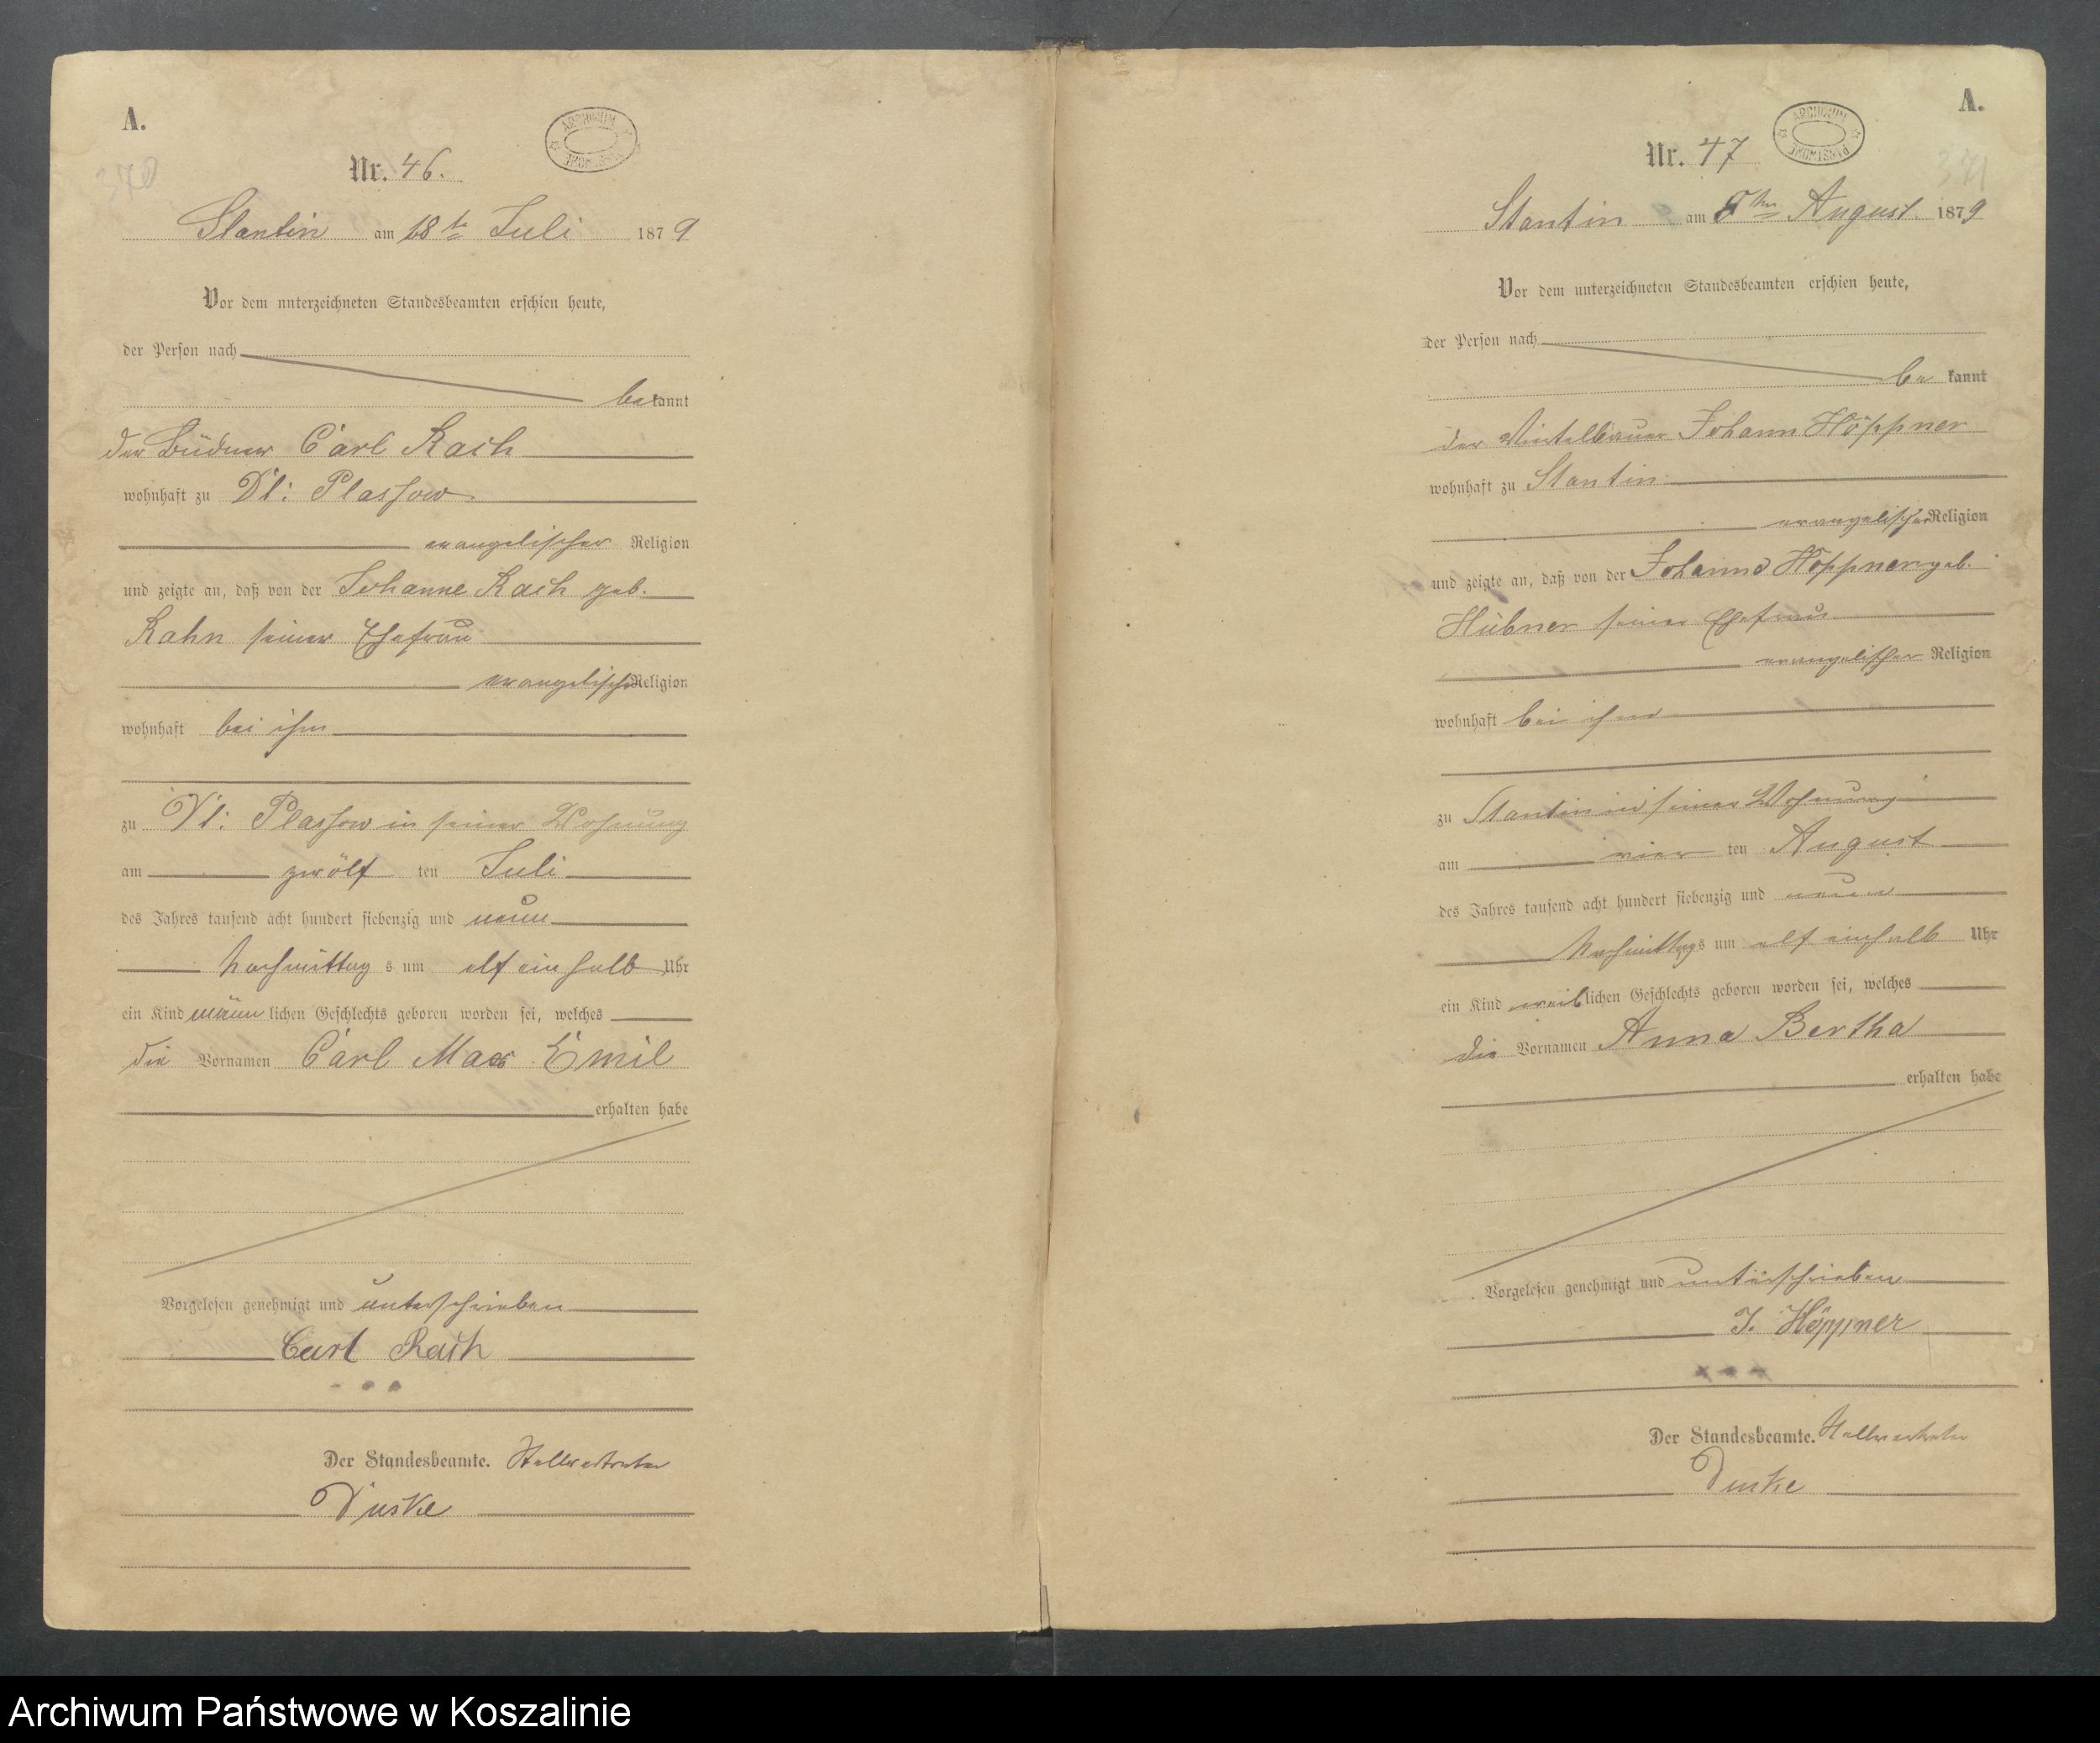 A.
370
ARCHIWUM PAŃSTWOWE
Nr. 46.
Stantin am 18te Juli 1879
Vor dem unterzeichneten Standesbeamten erschien heute,
der Person nach
be kannt
der Büdner Carl Rach
wohnhaft zu Dt: Plassow
evangelischer Religion
und zeigte an, daß von der Johanne Rach geb.
Rahn seiner Ehefrau
evangelischer Religion
wohnhaft bei ihm
zu Dt: Plassow in seiner Wohnung
am zwölf ten Juli
des Jahres tausend acht hundert siebenzig und neun
Nachmittag s um elf ein halb Uhr
ein Kind männ lichen Geschlechts geboren worden sei, welches
die Vornamen Carl Max Emil
erhalten habe
Vorgelesen genehmigt und unterschrieben
Carl Rach
Der Standesbeamte. Stellvertreter
Duske
A.
371
ARCHIWUM PAŃSTWOWE
Nr. 47
Stantin am ten August 1879
Vor dem unterzeichneten Standesbeamten erschien heute,
der Person nach
be kannt
der Viertelbauer Johann Höppner
wohnhaft zu Stantin
evangelischer Religion
und zeigte an, daß von der Johanne Höppner geb.
Hübner seiner Ehefrau
evangelischer Religion
wohnhaft bei ihm
zu Stantin in seiner Wohnung
am vier ten August
des Jahres tausend acht hundert siebenzig und neun
Nachmittags um elf einhalb Uhr
ein Kind weiblichen Geschlechts geboren worden sei, welches
die Vornamen Anna Bertha
erhalten habe
Vorgelesen genehmigt und unterschrieben
J. Höppner
Der Standesbeamte. Stellvertreter
Duske
Archiwum Państwowe w Koszalinie